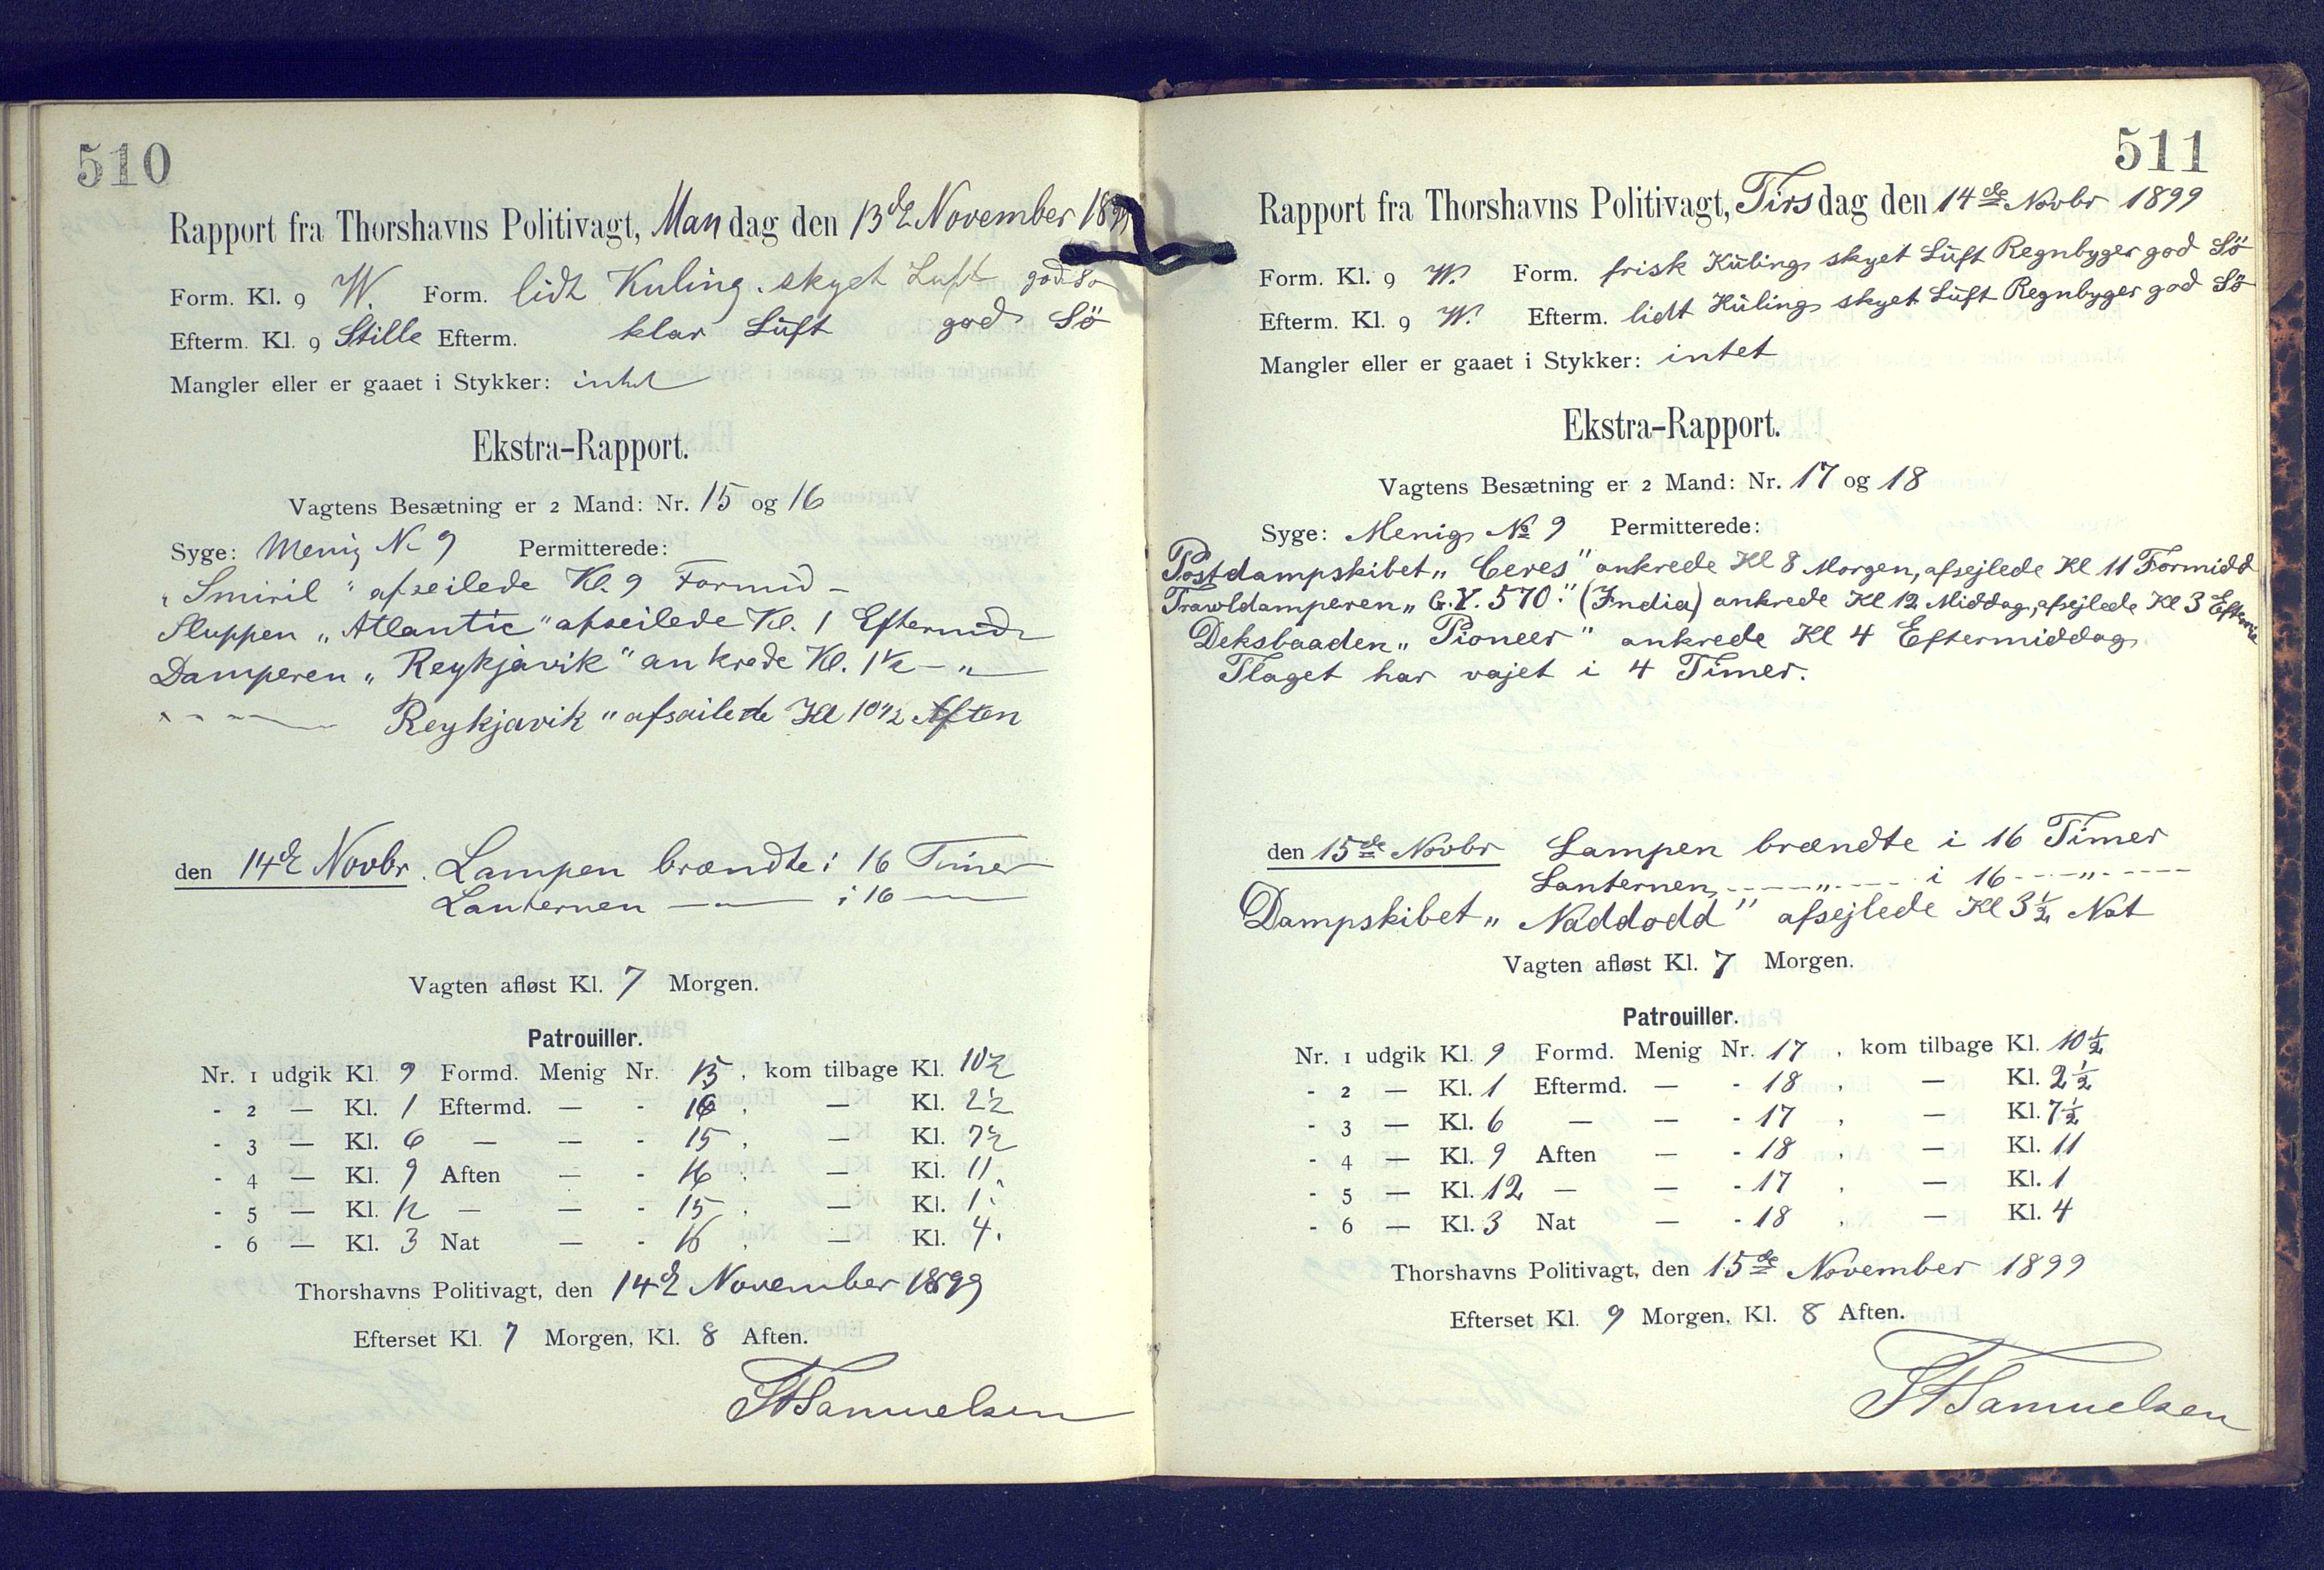 510
Rapport fra Thorshavns Politivagt, Mandag den 13de November 1899
Form. Kl. 9 W. Form. lidt Kuling. skyet Luft god Sø
Efterm. Kl. 9 Stille Efterm. klar Luft god Sö
Mangler eller er gaaet i Stykker: intet
Ekstra-Rapport.
Vagtens Besætning er 2 Mand: Nr. 15 og 16
Syge: Menig No 9 Permitterede:
„Smiril" afseilede Kl. 9 Formid -
Sluppen „Atlantic" afseilede Kl. 1 Eftermid
Damperen „Reykjavik" ankrede Kl. 1½ — „ —
" - - — Reykjavik" afsailede Kl 10½ Aften
den 14de Novbr. Lampen brændte i 16 Timer
Lanternen — " — i 16 —
Vagten afløst Kl. 7 Morgen.
Patrouiller.
Nr. 1 udgik Kl. 9 Formd. Menig Nr. 15, kom tilbage Kl. 10½
- 2 — Kl. 1 Eftermd. — - 16, — Kl. 2½
- 3 — Kl. 6 — — - 15, — Kl. 7½
- 4 — Kl. 9 Aften — - 16, — Kl. 11
- 5 — Kl. 12 — — - 15, — Kl. 1
- 6 — Kl. 3 Nat — - 16, — Kl. 4.
Thorshavns Politivagt, den 14de November 1899
Efterset Kl. 7 Morgen, Kl. 8 Aften.
Samuelsen
511
Rapport fra Thorshavns Politivagt, Tirsdag den 14de Novbr 1899
Form. Kl. 9 W. Form. frisk Kuling skyet Luft Regnbyger god Sö
Efterm. Kl. 9 W. Efterm. lidt Kuling skyet Luft Regnbyger god Sö
Mangler eller er gaaet i Stykker: intet
Ekstra-Rapport.
Vagtens Besætning er 2 Mand: Nr. 17 og 18
Syge: Menig No 9 Permitterede:
Postdampskibet „Ceres" ankrede Kl 8 Morgen, afsejlede Kl 11 Formidd
Trawldamperen „G.Y. 570." (India) ankrede Kl 12 Middag, afsejlede Kl 3 Eftermid
Deksbaaden „Pioneer" ankrede Kl 4 Eftermiddag
Flaget har vajet i 4 Timer.
den 15de Novbr Lampen brændte i 16 Timer
Lanternen, - - - „ - - - i 16 - - - „ - - -
Dampskibet „Naddodd" afsejlede Kl 3½ Nat
Vagten afløst Kl. 7 Morgen.
Patrouiller.
Nr. 1 udgik Kl. 9 Formd. Menig Nr. 17, kom tilbage Kl. 10½
- 2 — Kl. 1 Eftermd. — - 18, — Kl. 2½
- 3 — Kl. 6 — — - 17, — Kl. 7½
- 4 — Kl. 9 Aften — - 18, — Kl. 11
- 5 — Kl. 12 — — - 17, — Kl. 1
- 6 — Kl. 3 Nat — - 18, — Kl. 4
Thorshavns Politivagt, den 15de November 1899
Efterset Kl. 9 Morgen, Kl. 8 Aften.
Samuelsen